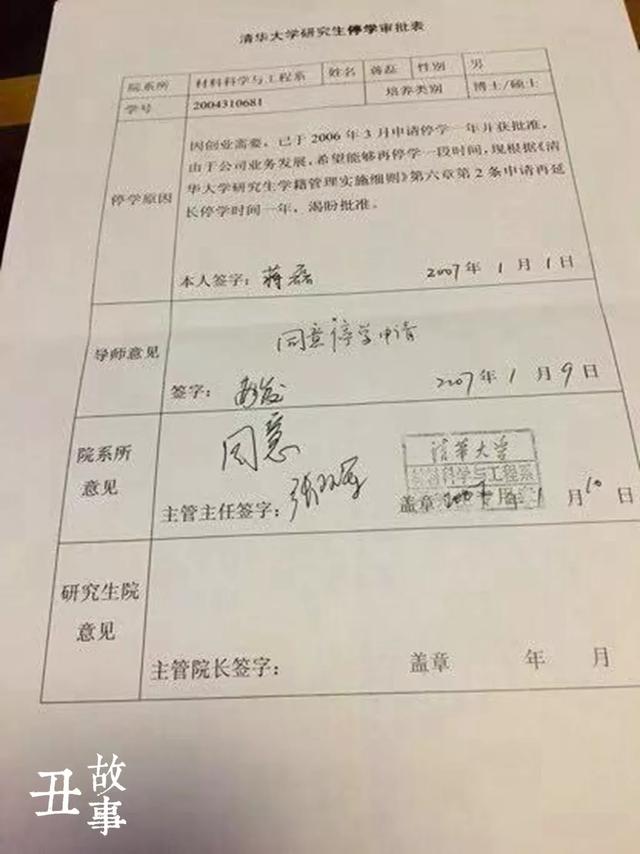 清华大学研究生停学审批表
院系所 材料科学与工程系 姓名 蒋磊 性别 男
学号 2004310681 培养类别 博士/硕士
停学原因
因创业需要，已于 2006 年 3 月申请停学一年并获批准，
由于公司业务发展，希望能够再停学一段时间，现根据《清
华大学研究生学籍管理实施细则》第六章第 2 条申请再延
长停学时间一年，渴盼批准。
本人签字：蒋磊 2007 年 1 月 1 日
导师意见
同意停学申请
签字： 2007 年 1 月 9 日
院系所
意见
同意
清华大学
材料科学与工程系
主管主任签字： 盖章 2007 年 1 月 10 日
研究生院
意见
主管院长签字： 盖章 年 月
丑故事